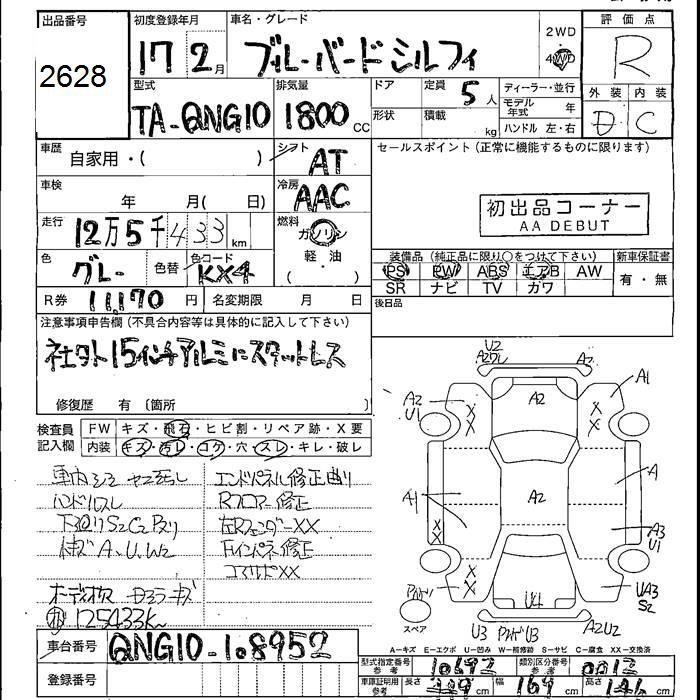 出品番号
2628
初度登録年月
17 2月
車名・グレード
ブルーバードシルフィ
2WD
4WD
評価点
R
外装 内装
D C
型式
TA-QNG10
排気量
1800 CC
ドア
定員 5人
形状
積載 kg
ディーラー・並行
モデル年式 年
ハンドル 左・右
車歴
自家用・( )
シフト
AT
車検
年 月( 日)
冷房
AAC
走行
12万5千433km
燃料
ガソリン
軽・油
( )
色
グレー
色替
色コード
KX4
R券 11,170 円
名変期限 月 日
セールスポイント (正常に機能するものに限ります)
初出品コーナー
AA DEBUT
装備品 (純正品に限り○をつけて下さい)
新車保証書
PS PW ABS エアB AW
SR ナビ TV カワ
有・無
後日品
注意事項申告欄 (不具合内容等は具体的に記入して下さい)
社外15インチアルミにスタットレス
修復歴 有 〔箇所 〕
検査員
記入欄
FW キズ・飛石・ヒビ割・リペア跡・X要
内装 キズ・汚レ・コゲ・穴・スレ・キレ・破レ
車内シミ ヤニ汚レ
ハンドルスレ
下廻りS2C2Pヌリ
キズA、U、W2
オーディオ欠
125433k
エンドパネル修正曲り
Rフロアー修正
左RフェンダーXX
Fインパネ修正
コアサポXX
U2
A2
A2
A1
A2
U1
X
X
X
X
A2
A1
A
A2
X
X
A3
U1
X
X
U4
UA3
S2
スペア
U3
A2U2
A=キズ E=エクボ U=凹み W=補修跡 S=サビ C=腐食 XX=交換済
車台番号
QNG10-108952
登録番号
型式指定番号
参考
10692
類別区分番号
参考
0012
車庫証明用
参考
長さ cm
幅 169 cm
高さ cm